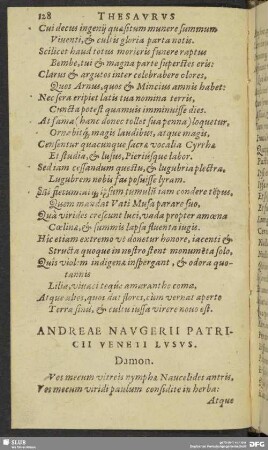 128 THESAVRVS
Cui decus ingenij quæsitum munere summum
Viventi, & cultis gloria parta notis.
Scilicet haud totus morieris suvere raptus
Bembe, tui & magna parte superstes eris:
Clarus & argutos inter celebrabere olores,
Quos Arnus, quos & Mincius amnis habet:
Nec sera eripiet latii tua nomina terris,
Cuncta potest quamvis imminuisse dies.
At fama (hanc donec tollet sua penna) loquetur,
Ornabitq́; magis laudibus, atque magis,
Censentur quacunque sacra vocalia Cyrrha
Et studia, & lusus, Pieriusque labor.
Sed tam cessandum questu, & lugubria plectra,
Lugubrem nobis fas posuisse lyram.
ipsum tumulis iam condere tēpus,
Quem mandat Vati Musa parare suo,
Quà virides crescunt luci, vada propter amœna
Cœlina, & summis lapsa fluenta iugis.
Hic etiam extremo ut donetur honore, iacenti &
Structa quoque in nostro stent monumēta solo,
Quis violas indigenæ inspergant, & odora quotannis
Lilia, vivaci teque amaranthe coma.
Atque altos, quos dat flores, cùm vernat aperto
Terra sinu, & cultu iussa virere novo est.
ANDREAE NAVGERII PATRI-
CII VENETI LVSVS.
Damon.
Vos mecum vitreis nymphæ Naucelides antris,
Vos mecum viridi paulum considite in herba:
Atque
SLUB
DFG